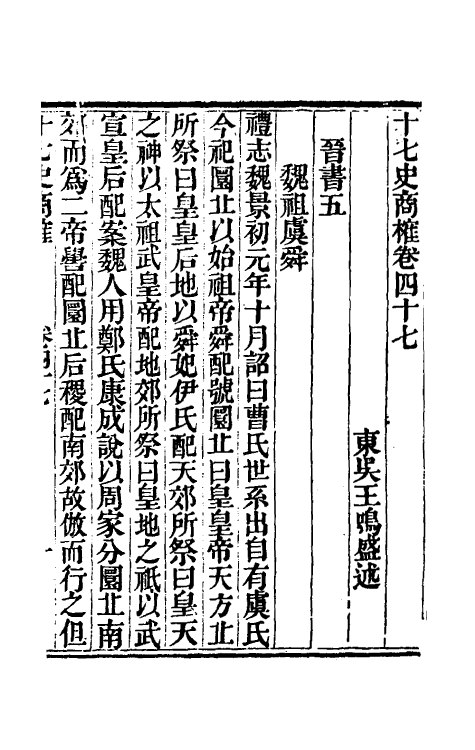 十七史商榷卷四十七
東吳王鳴盛述
晉書五
魏祖虞舜
禮志魏景初元年十月詔曰曹氏世系出自有虞氏
今祀圜丘以始祖帝舜配號圜丘曰皇皇帝天方丘
所祭曰皇皇后地以舜妃伊氏配天郊所祭曰皇天
之神以太祖武皇帝配地郊所祭曰皇地之祇以武
宣皇后配案魏人用鄭氏康成說以周家分圜丘南
郊而爲二帝嚳配圜丘后稷配南郊故倣而行之但
十七史商榷 卷四十七 一